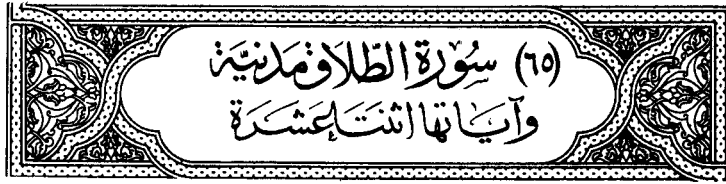 (٦٥) سُورَة الطَّلَاق مَدَنِيَّة
وَآيَاتهَا اثنَتَا عَشَرَة